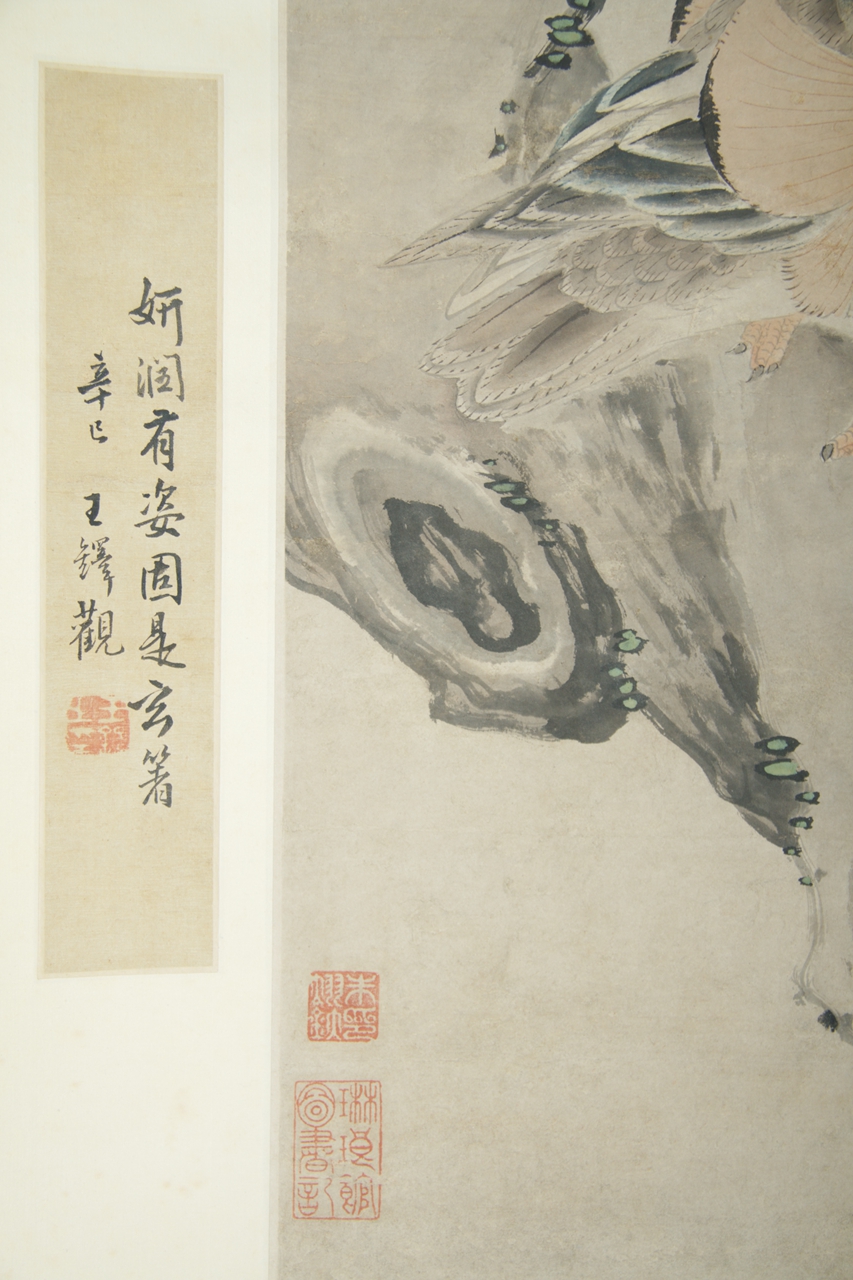 妍潤有姿固是玄箸
辛巳 王鐸觀
琳瑯館
圖書記